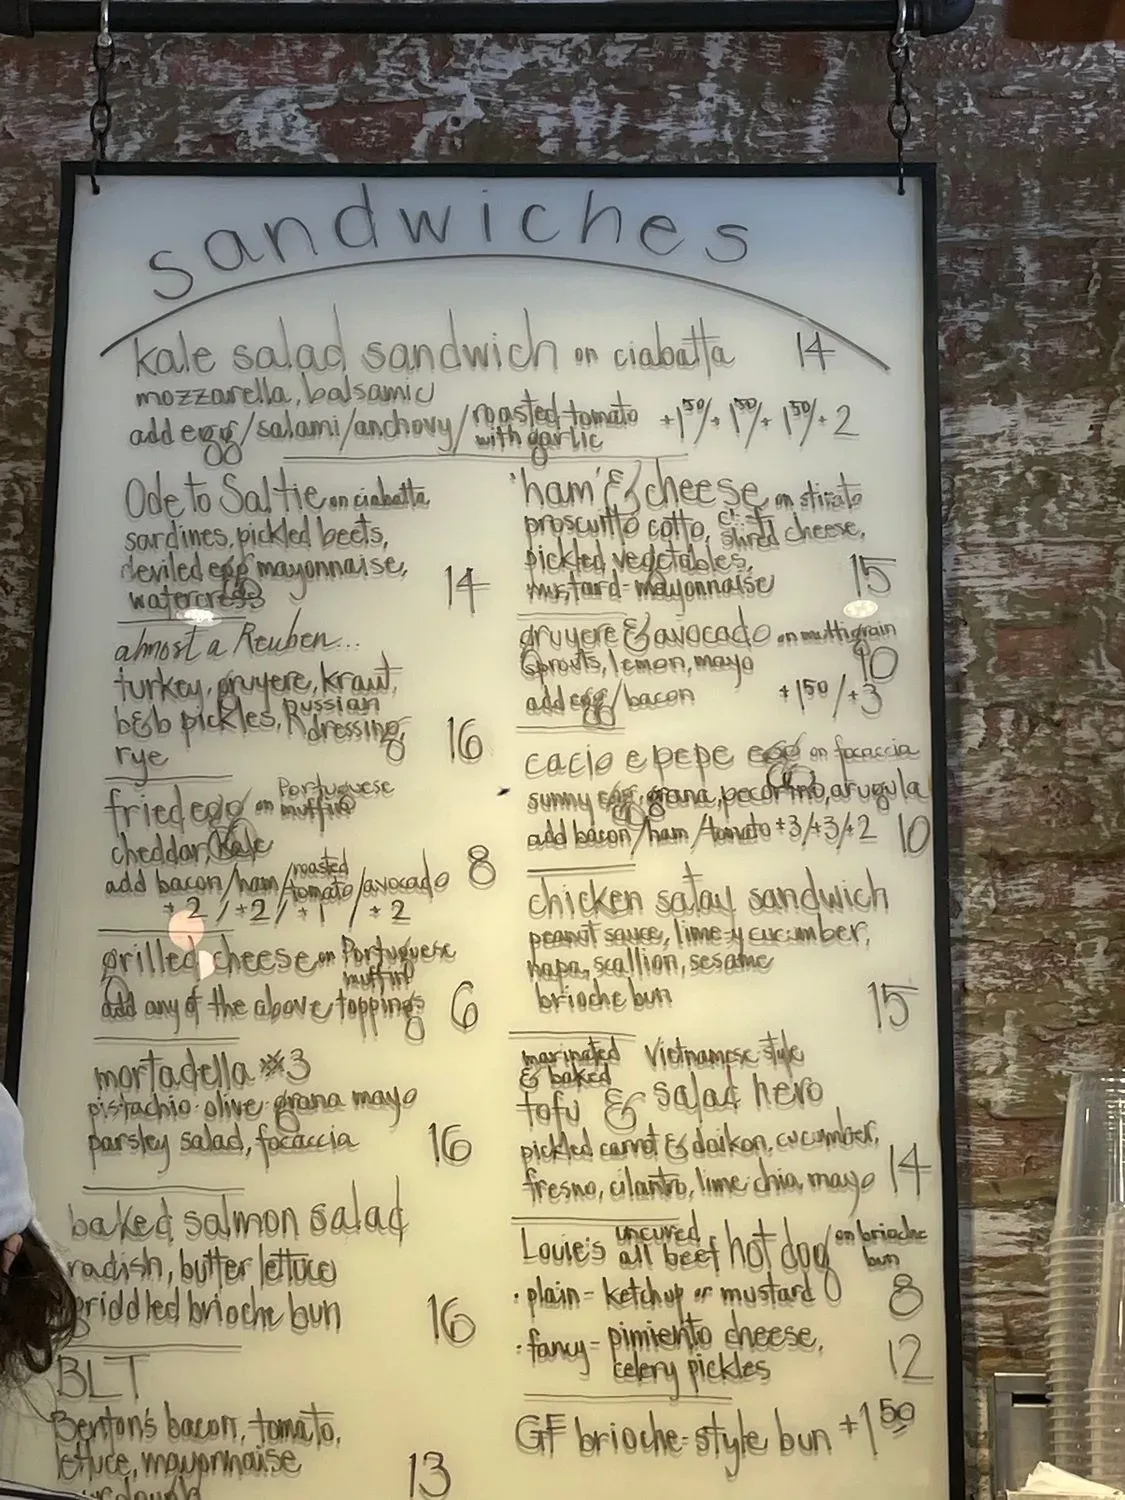 sandwiches
kale salad sandwich on ciabatta 14
mozzarella, balsamic
add egg/salami/anchovy/roasted tomato with garlic +1 50/+ 1 50/+ 1 50/+ 2
Ode to Saltie on ciabatta
sardines, pickled beets,
deviled egg mayonnaise,
watercress 14
almost a Reuben...
turkey, gruyere, kraut,
b&b pickles, Russian dressing,
rye 16
fried egg on Portuguese muffin
cheddar, kale
add bacon/ham/roasted tomato/avocado 8
+2/+2/+1/+2
grilled cheese on Portuguese muffin
add any of the above toppings 6
mortadella #3
pistachio-olive-grana mayo
parsley salad, focaccia 16
baked salmon salad
radish, butter lettuce
griddled brioche bun 16
BLT
Benton's bacon, tomato,
lettuce, mayonnaise 13
'ham' & cheese on stirato
prosciutto cotto, cheese,
pickled vegetables,
mustard-mayonnaise 15
gruyere & avocado on multigrain
sprouts, lemon, mayo 10
add egg/bacon +1 50/+3
cacio e pepe egg on focaccia
sunny egg, grana, pecorino, arugula
add bacon/ham/tomato +3/+3/+2 10
chicken satay sandwich
peanut sauce, lime-y cucumber,
napa, scallion, sesame
brioche bun 15
marinated & baked Vietnamese style
tofu & salad hero
pickled carrot & daikon, cucumber,
fresno, cilantro, lime-chia mayo 14
Louie's uncured all beef hot dog on brioche bun
• plain - ketchup or mustard 8
• fancy - pimiento cheese,
celery pickles 12
GF brioche-style bun +1 50